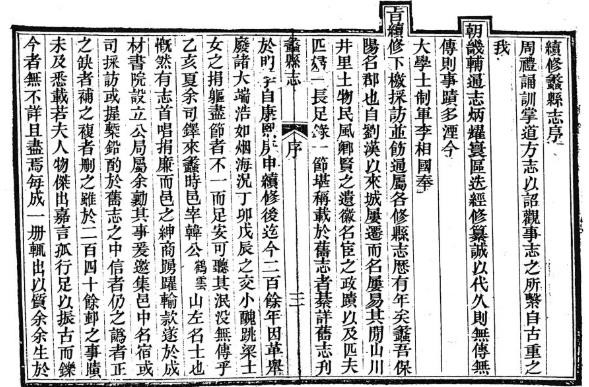 續修蠡縣志序
周禮誦訓掌道方志以詔觀事志之所繫自古重之
我
朝畿輔通志炳燿寰區迭經修纂誠以代久則無傳無
傳則事蹟多湮今
大學士制軍李相國奉
旨續修下檄採訪並飭通屬各修縣志歷有年矣蠡吾保
陽名郡也自劉漢以來城屢遷而名屢易其間山川
井里土物民風鄉賢之遺徽名宦之政蹟以及匹夫
匹婦一長足錄一節堪稱載於舊志者綦詳舊志刋
蠡縣志
序
三
於明季自康熙庚申續修後迄今二百餘年因革舉
廢諸大端浩如烟海况丁卯戊辰之交小醜跳梁士
女之捐軀盡節者不一而足安可聽其泯没無傳乎
乙亥夏余司鐸來蠡時邑宰韓公鶴雲山左名士也
慨然有志首唱捐廉而邑之紳商踴躍輸款遂於成
材書院設立公局屬余勷其事爰邀集邑中名宿或
司採訪或握槧鉛酌於舊志之中信者仍之譌者正
之缺者補之複者刪之雖於二百四十餘郵之事蹟
未及悉載若夫人物傑出嘉言孤行足以振古而鑠
今者無不詳且盡焉每成一册輒出以質余余生於